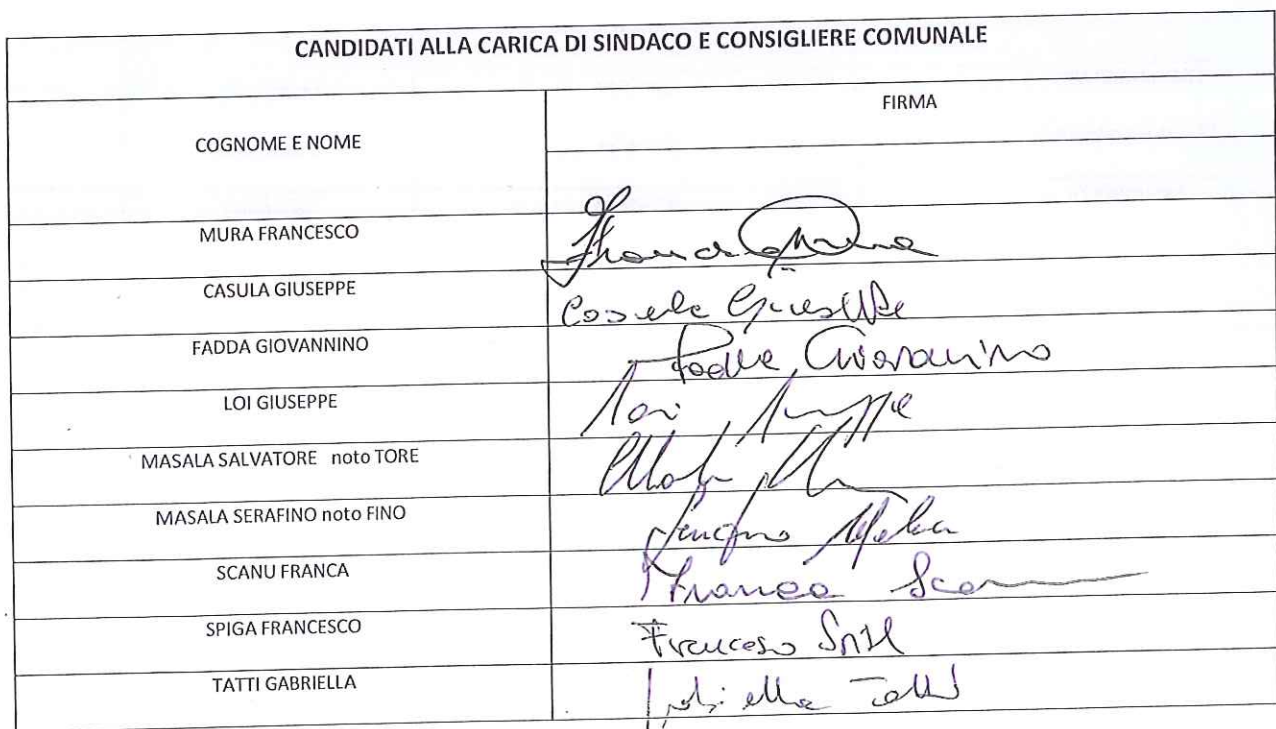 CANDIDATI ALLA CARICA DI SINDACO E CONSIGLIERE COMUNALE
COGNOME E NOME
FIRMA
MURA FRANCESCO
CASULA GIUSEPPE Casula Giuseppe
FADDA GIOVANNINO Fadda Giovannino
LOI GIUSEPPE Loi Giuseppe
MASALA SALVATORE noto TORE
MASALA SERAFINO noto FINO Serafino Masala
SCANU FRANCA Franca Scanu
SPIGA FRANCESCO Francesco
TATTI GABRIELLA Gabriella Tatti